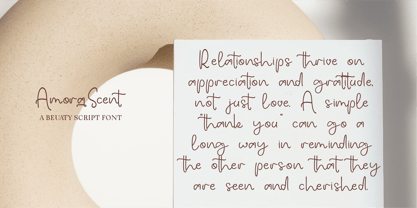 Amora Scent
A BEUATY SCRIPT FONT
Relationships thrive on
appreciation and gratitude,
not just love. A simple
"thank you" can go a
long way in reminding
the other person that they
are seen and cherished.